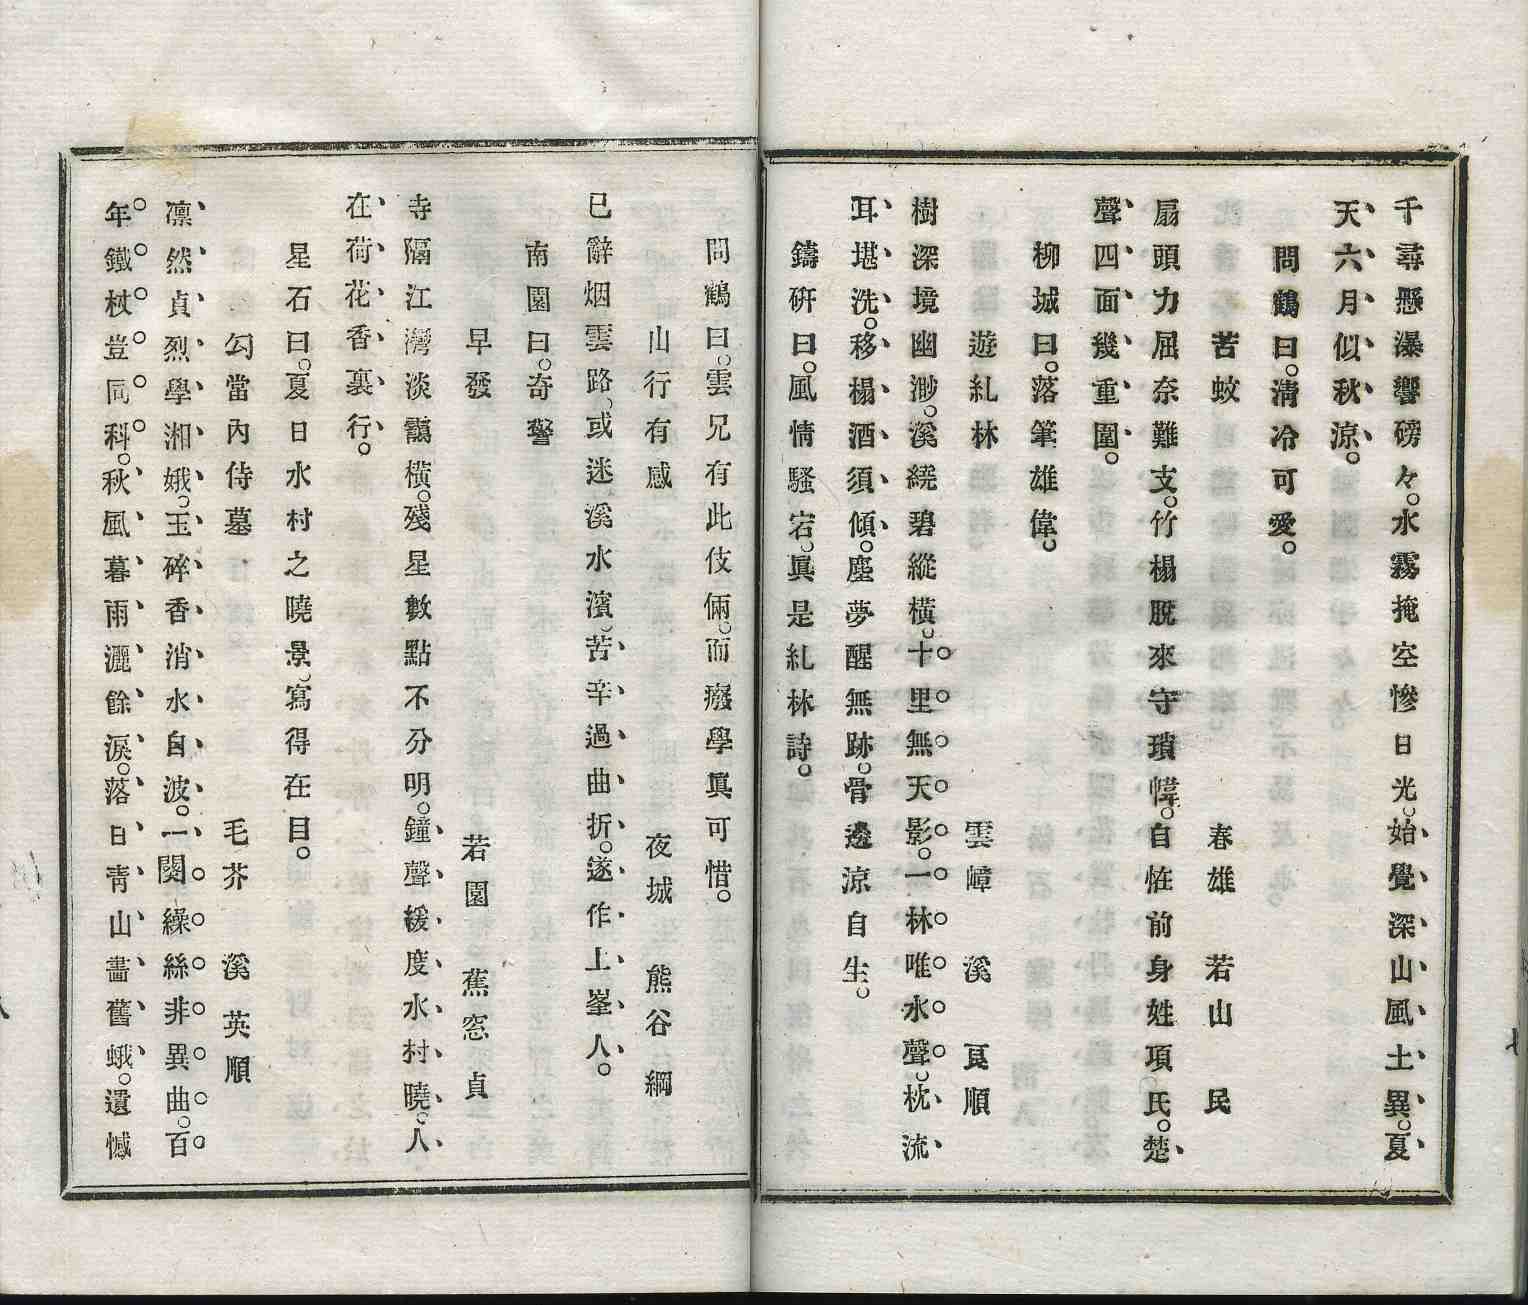 千尋懸瀑響磅々。水霧掩空慘日光。始覺深山風土異。夏
天六月似秋涼。
問鶴曰。淸冷可愛。
苦蚊　春雄　若山　民
扇頭力屈奈難支。竹榻脫來守瑣幃。自恠前身姓項氏。楚
聲四面幾重圍。
柳城曰。落筆雄偉。
遊糺林　雲嶂　溪　良順
樹深境幽渺。溪繞碧縱橫。十里無天影。一林唯水聲。枕流
耳堪洗。移榻酒須傾。塵夢醒無跡。骨邊涼自生。
鑄硏曰。風情騷宕。眞是糺林詩。
問鶴曰。雲兄有此伎倆。而癈學眞可惜。
山行有感　夜城　熊谷　綱
已辭烟雲路。或迷溪水濱。苦辛過曲折。遂作上峯人。
南園曰。奇警
早發　若園　蕉窓　貞
寺隔江灣淡靄橫。殘星數點不分明。鐘聲緩度水村曉。人
在荷花香裏行。
星石曰。夏日水村之曉景。寫得在目。
勾當內侍墓　毛芥　溪　英順
凛然貞烈學湘娥。玉碎香消水自波。一闋繰絲非異曲。百
年鐵杖豈同科。秋風暮雨灑餘淚。落日靑山畵舊蛾。遺憾